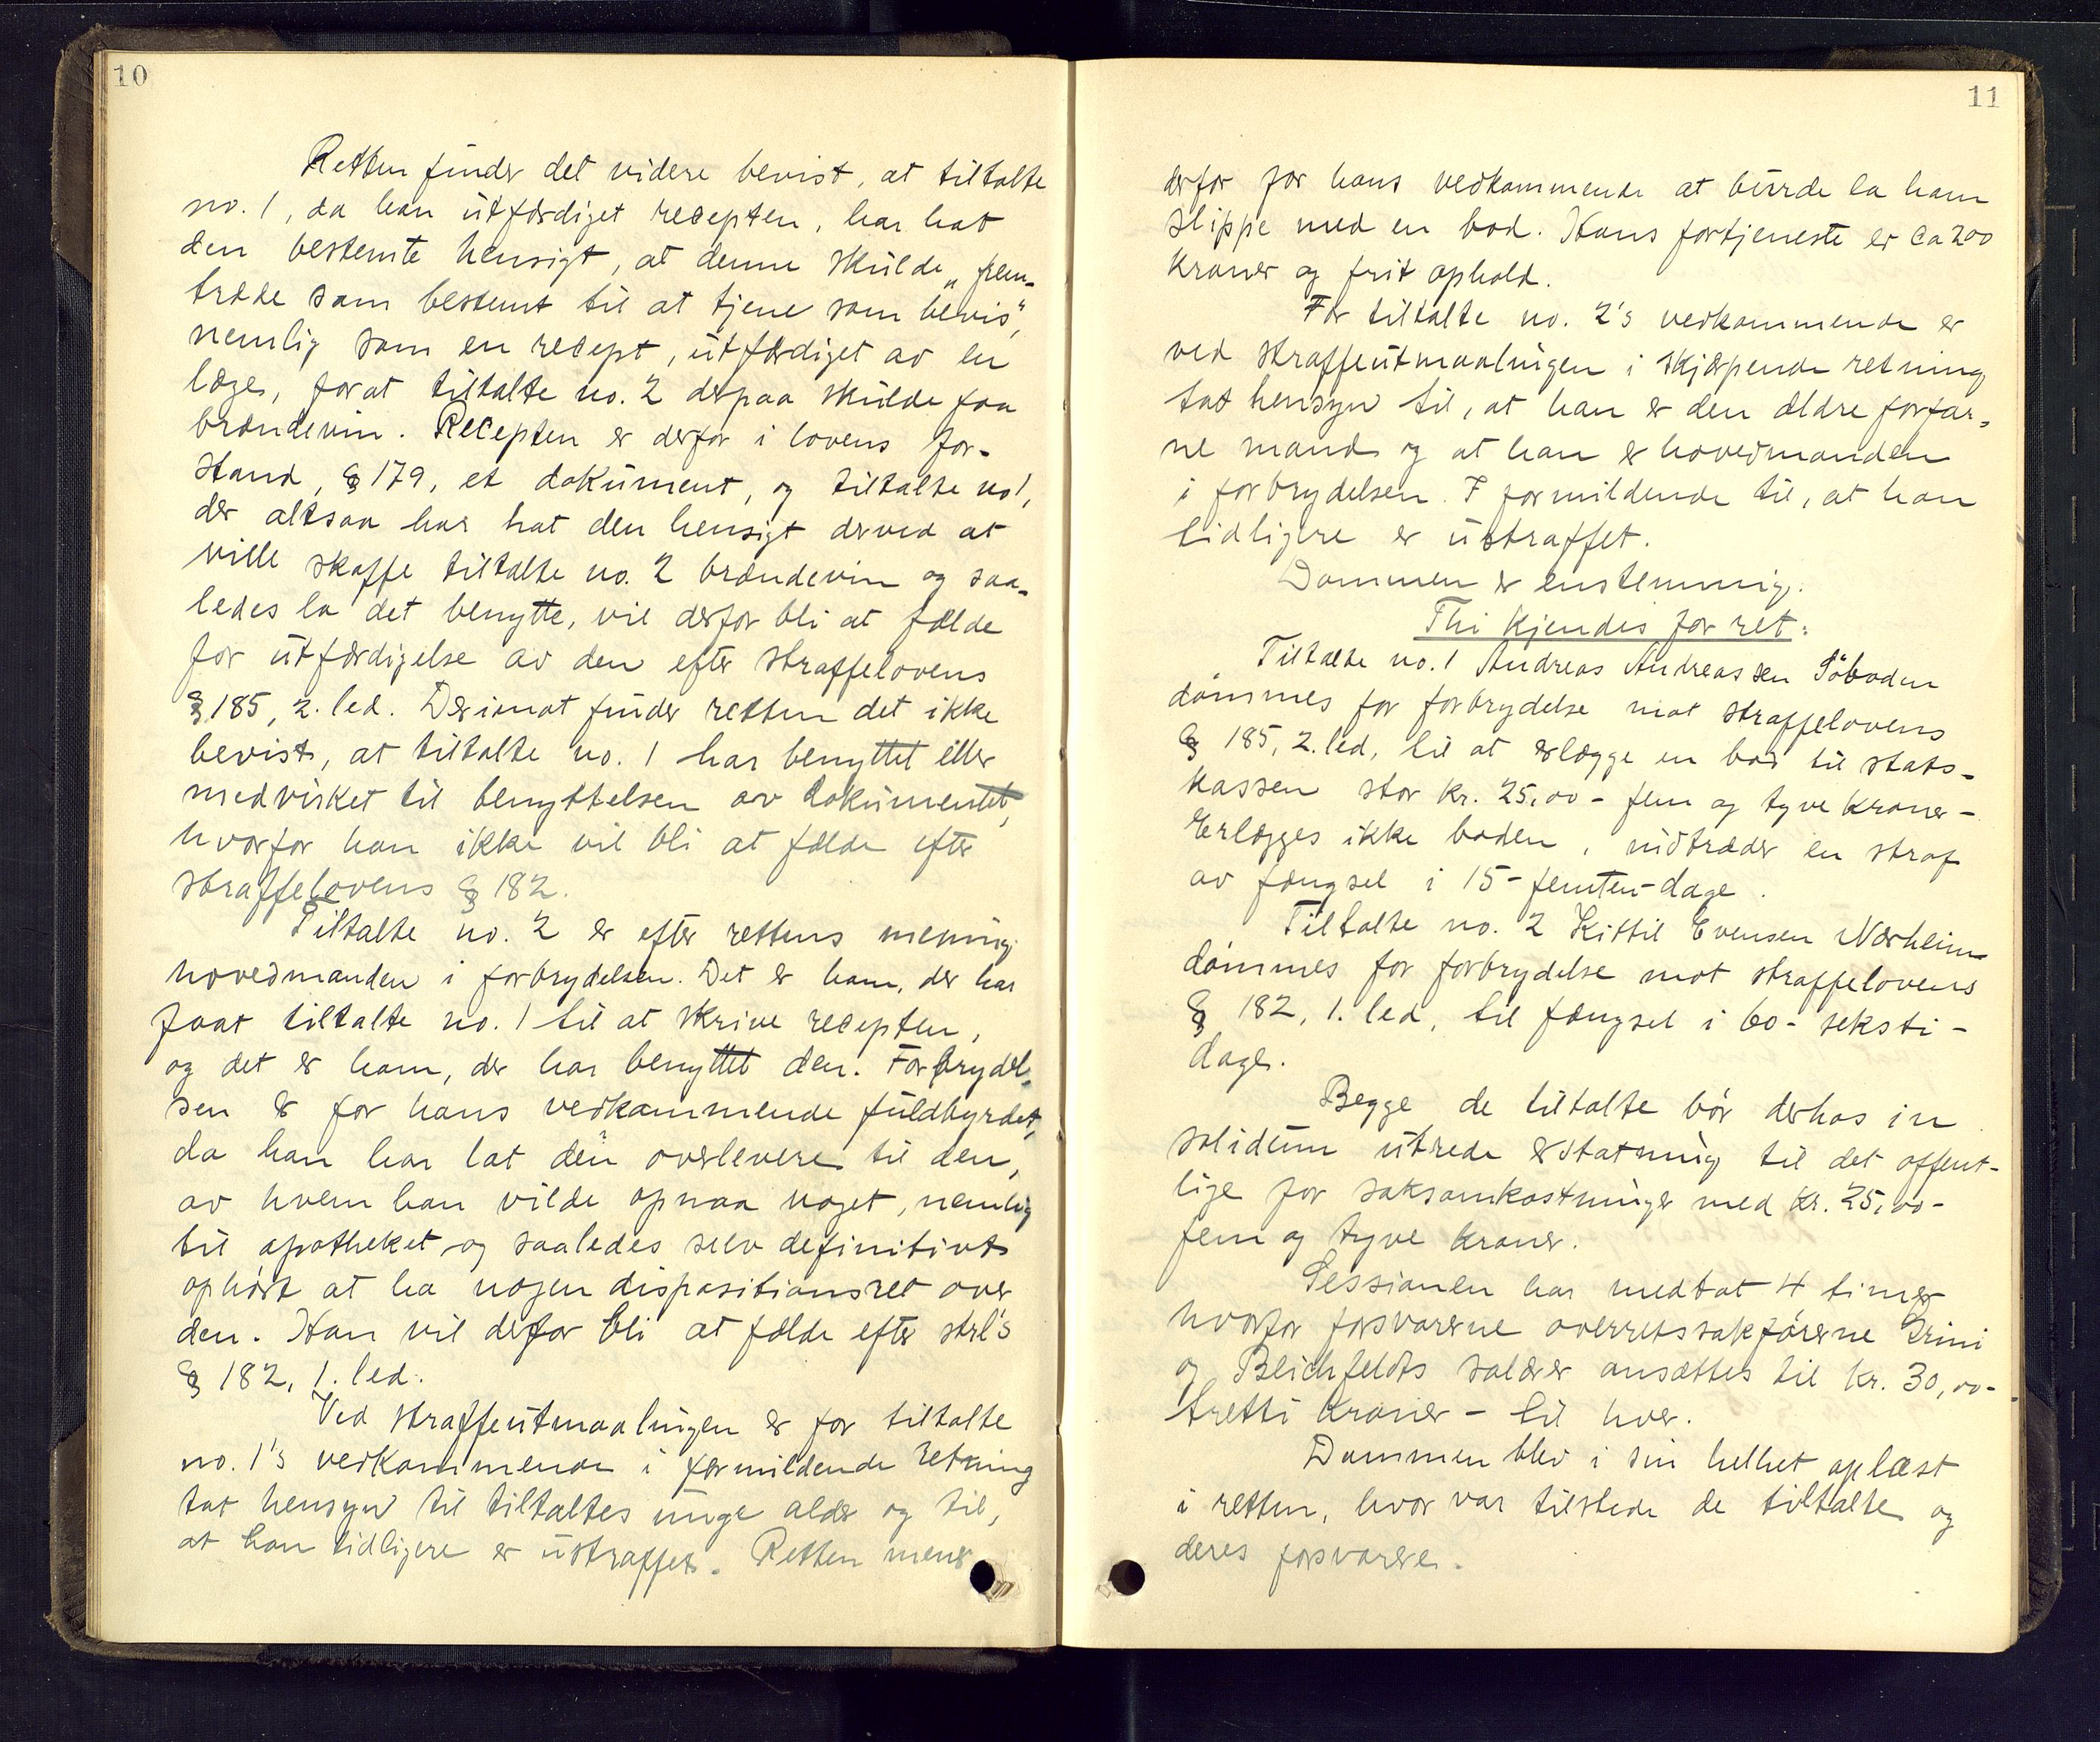 10
Retten finder det videre bevist, at tiltalte
no. 1, da han utfærdiget recepten, har hat
den bestemte hensigt, at denne skulde „frem-
træde som bestemt til at tjene som bevis“,
nemlig som en recept, utfærdiget av en
læge, forat tiltalte no. 2 derpaa skulde faa
brændevin. Recepten er derfor i lovens for-
stand, § 179, et dokument, og tiltalte no 1,
der altsaa har hat den hensigt derved at
ville skaffe tiltalte no. 2 brændevin og saa-
ledes la det benytte, vil derfor bli at fælde
for utfærdigelse av den efter straffelovens
§ 185, 2. led. Derimot finder retten det ikke
bevist, at tiltalte no. 1 har benyttet eller
medvirket til benyttelsen av dokumentet,
hvorfor han ikke vil bli at fælde efter
straffelovens § 182.
Tiltalte no. 2 er efter rettens mening
hovedmanden i forbrydelsen. Det er ham, der har
faat tiltalte no. 1 til at skrive recepten,
og det er ham, der har benyttet den. Forbrydel-
sen er for hans vedkommende fuldbyrdet,
da han har lat den overlevere til den,
av hvem han vilde opnaa noget, nemlig
til apotheket og saaledes selv definitivt
ophørt at ha nogen dispositionsret over
den. Han vil derfor bli at fælde efter strl's
§ 182, 1. led.
Ved straffeutmaalingen er for tiltalte
no. 1's vedkommende i formildende retning
tat hensyn til tiltaltes unge alder og til,
at han tidligere er ustraffet. Retten mener
11
derfor for hans vedkommende at burde la ham
slippe med en bod. Hans fortjeneste er ca 200
kroner og frit ophold.
For tiltalte no. 2's vedkommende er
ved straffeutmaalingen i skjærpende retning
tat hensyn til, at han er den ældre forfar-
ne mand og at han er hovedmanden
i forbrydelsen. I formildende til, at han
tidligere er ustraffet.
Dommen er enstemmig.
Thi kjendes for ret:
Tiltalte no. 1 Andreas Andreassen Söboden
dömmes for forbrydelse mot straffelovens
§ 185, 2. led, til at erlægge en bod til stats-
kassen stor kr. 25,00 - fem og tyve kroner -
Erlægges ikke boden, indtræder en straf
av fængsel i 15 - femten - dage.
Tiltalte no. 2 Kittil Evensen Nærheim
dömmes for forbrydelse mot straffelovens
§ 182, 1. led, til fængsel i 60 - seksti -
dage.
Begge de tiltalte bör derhos in
solidum utrede erstatning til det offent-
lige for saksomkostninger med kr. 25,00 -
fem og tyve kroner.
Sessionen har medtat 4 timer
hvorfor forsvarerne overretssakförerne Grini
og Bleichfeldts salærer ansættes til kr. 30,00 -
tretti kroner - til hver.
Dommen blev i sin helhet oplæst
i retten, hvor var tilstede de tiltalte og
deres forsvarere.